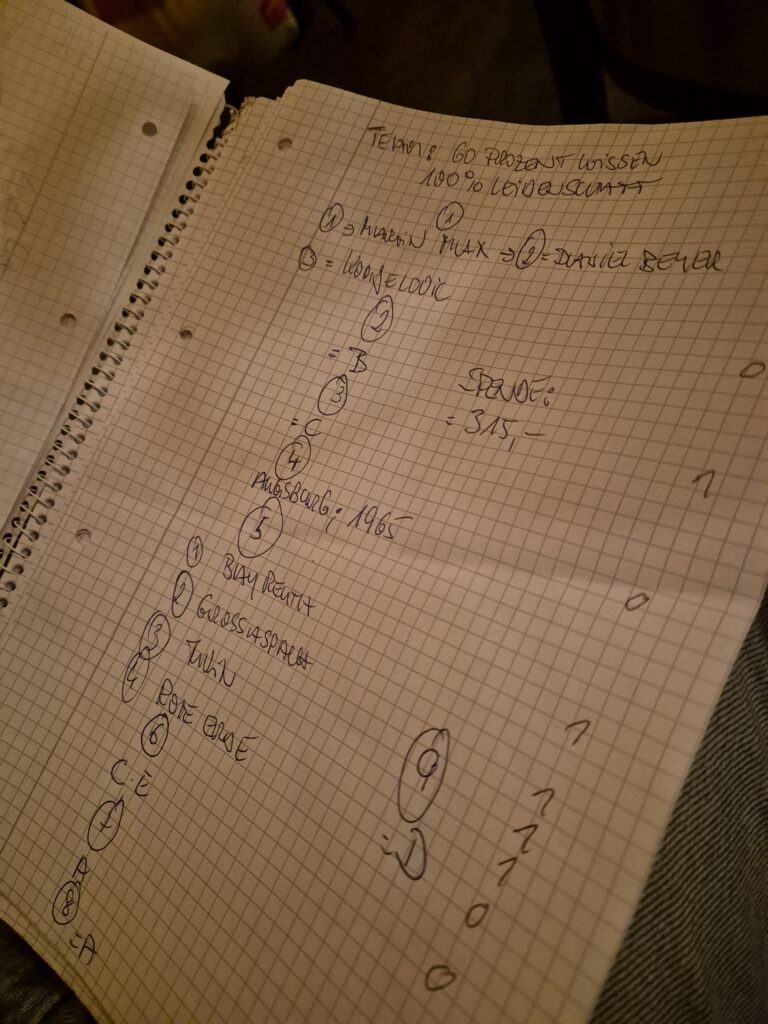 TEAM: 60 PROZENT WISSEN
100% LEIDENSCHAFT
①
① => MARTIN MAX => ② = DANIEL BEYER
③ =
②
= B
③
= C
SPENDE:
= 315,-
④
AUGSBURG; 1965
⑤
① BAYREUTH
② GROSSASPACH
③
④ ROTE ERDE
⑥
C. E
⑦
A
⑧
= A
⑨
= D
0
1
0
1
1
1
1
0
0